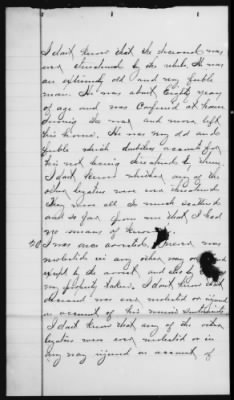 I don't know that the deceased was
ever threatened by the rebels. He was
an extremely old and very feeble
man. He was about Eighty years
of age and was confined at home
during the war and never left
his home. He was very old and
feeble which doubtless accounts for
his not being threatened by them
I don't know whether any of the
other legatees were ever threatened
They were all so much scattered
and so far from me that I had
no means of knowing
20 I was once arrested, I never was
molested in any other way
except by the arrest and also by
my property taken. I don't know that
deceased was ever molested or injured
on account of his union sentiments
I don't know that any of the other
legatees were ever molested or in
any way injured on account of